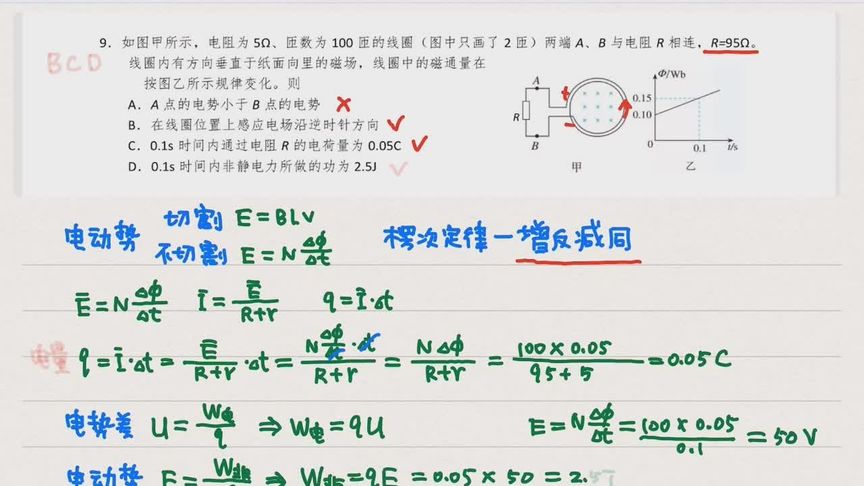 9. 如图甲所示，电阻为 5Ω、匝数为 100 匝的线圈（图中只画了 2 匝）两端 A、B 与电阻 R 相连，R=95Ω。
BCD
线圈内有方向垂直于纸面向里的磁场，线圈中的磁通量在
按图乙所示规律变化。则
A. A 点的电势小于 B 点的电势 ×
B. 在线圈位置上感应电场沿逆时针方向 ✓
C. 0.1s 时间内通过电阻 R 的电荷量为 0.05C ✓
D. 0.1s 时间内非静电力所做的功为 2.5J ✓
A
R
B
+
−
甲
Φ/Wb
0.15
0.10
0
0.1
t/s
乙
电动势 切割 E=BLV
不切割 E=N Δϕ/Δt
楞次定律—增反减同
Ē=N Δϕ/Δt Ī=Ē/(R+r) q=Ī·Δt
电量 q=Ī·Δt=Ē/(R+r)·Δt=(N Δϕ/Δt·Δt)/(R+r)=NΔϕ/(R+r)=(100×0.05)/(95+5)=0.05C
电势差 U=W电/q ⇒ W电=qU E=N Δϕ/Δt=(100×0.05)/0.1=50V
电动势 E=W非/q ⇒ W非=qE=0.05×50=2.5J